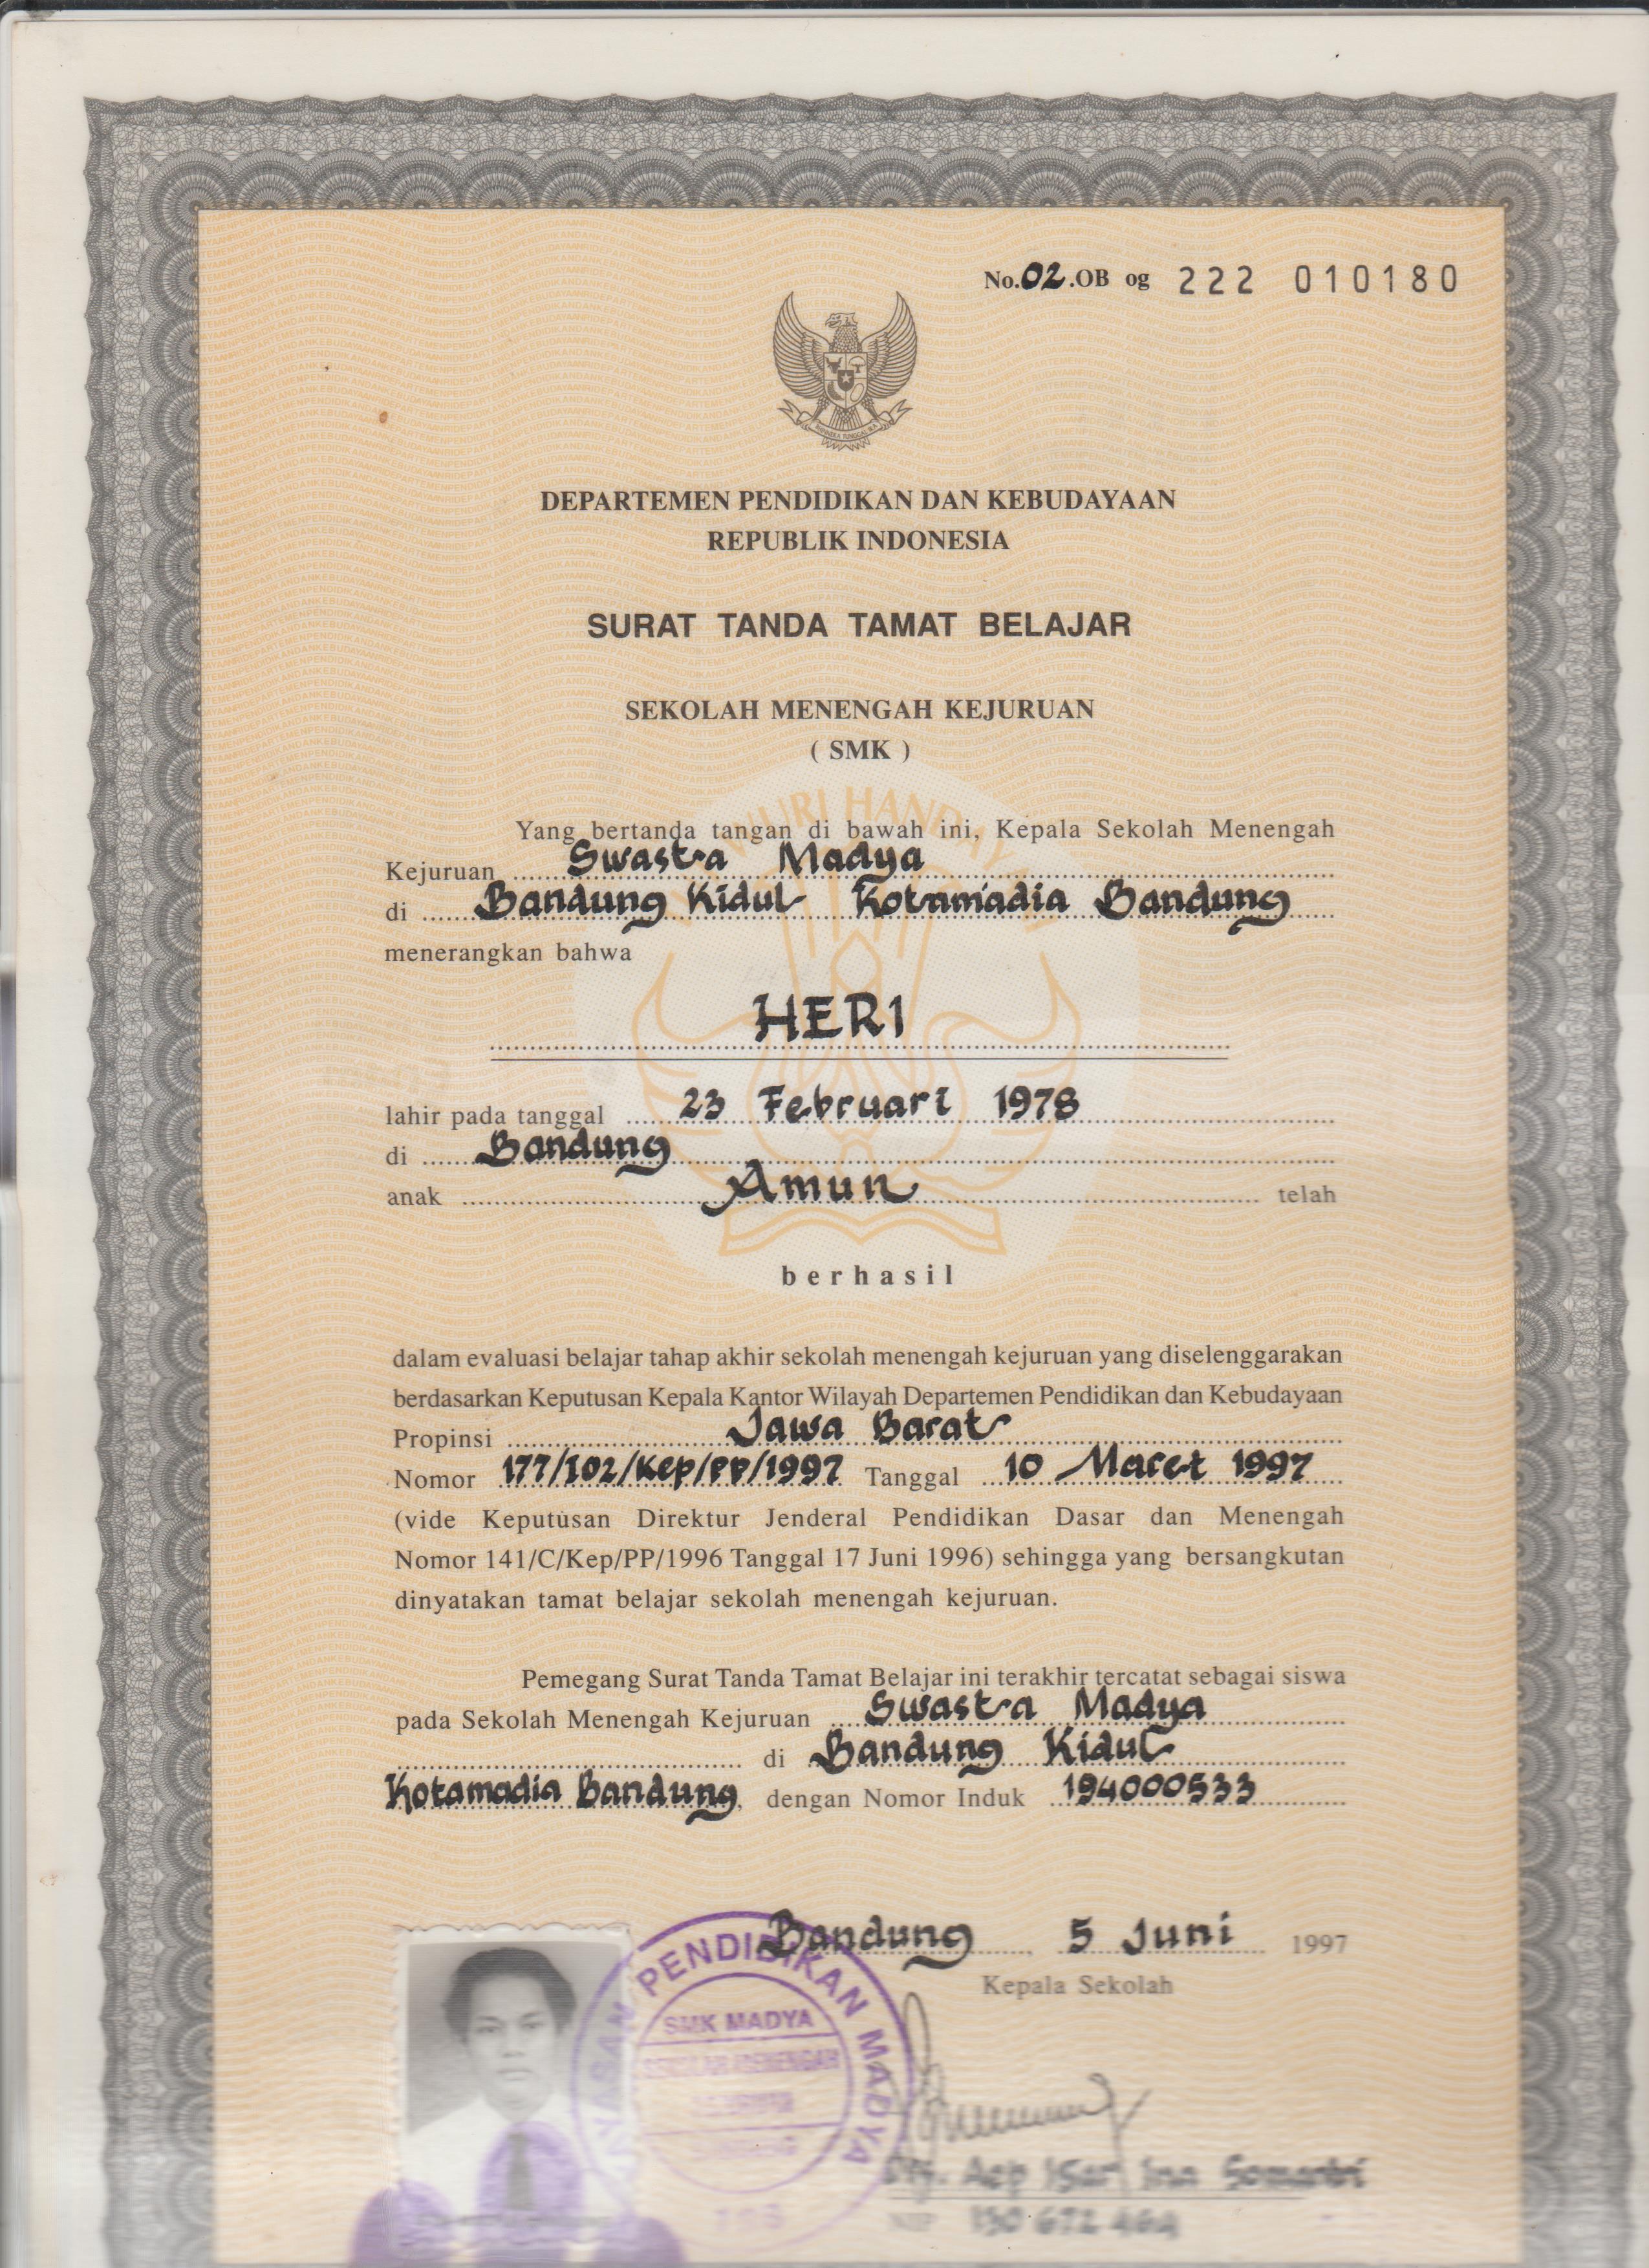 No. 02 .OB og 222 010180
DEPARTEMEN PENDIDIKAN DAN KEBUDAYAAN
REPUBLIK INDONESIA
SURAT TANDA TAMAT BELAJAR
SEKOLAH MENENGAH KEJURUAN
( SMK )
Yang bertanda tangan di bawah ini, Kepala Sekolah Menengah
Kejuruan Swasta Madya
di Bandung Kidul Kotamadia Bandung
menerangkan bahwa
HERI
lahir pada tanggal 23 Februari 1978
di Bandung
anak Amun telah
berhasil
dalam evaluasi belajar tahap akhir sekolah menengah kejuruan yang diselenggarakan
berdasarkan Keputusan Kepala Kantor Wilayah Departemen Pendidikan dan Kebudayaan
Propinsi Jawa Barat
Nomor 177/I02/Kep/PP/1997 Tanggal 10 Maret 1997
(vide Keputusan Direktur Jenderal Pendidikan Dasar dan Menengah
Nomor 141/C/Kep/PP/1996 Tanggal 17 Juni 1996) sehingga yang bersangkutan
dinyatakan tamat belajar sekolah menengah kejuruan.
Pemegang Surat Tanda Tamat Belajar ini terakhir tercatat sebagai siswa
pada Sekolah Menengah Kejuruan Swasta Madya
di Bandung Kidul
Kotamadia Bandung, dengan Nomor Induk 194000533
Bandung, 5 Juni 1997
Kepala Sekolah
YAYASAN PENDIDIKAN MADYA
SMK MADYA
SEKOLAH MENENGAH
Drs. Aep Somantri
NIP 130 672 464